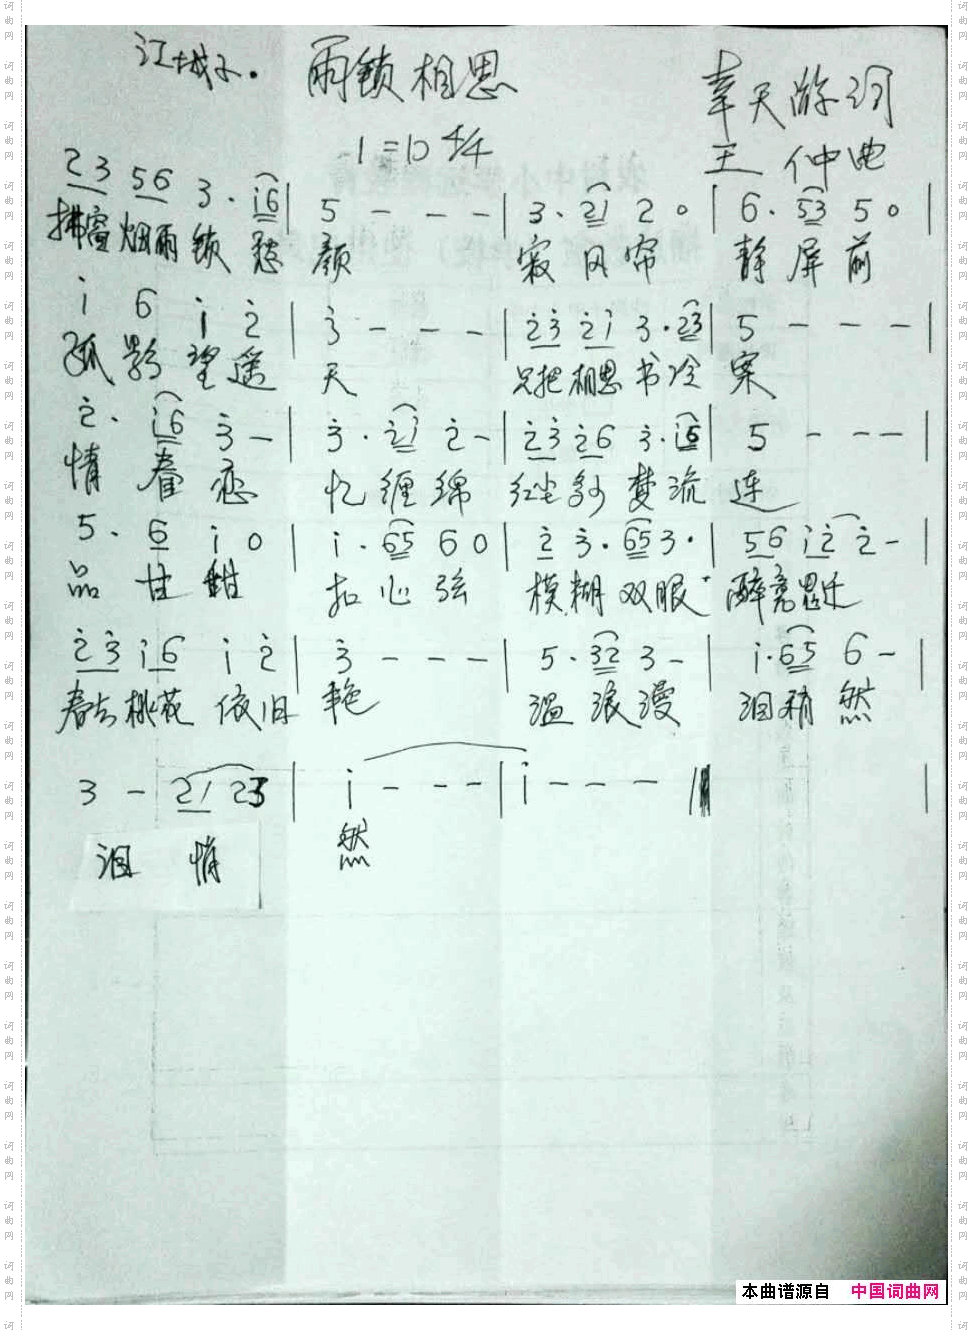 江城子. 雨锁相思
幸天游词
1=D 4/4
王仲曲
2 3 5 6 3 · i 6 | 5 - - - | 3 · 2 1 2 0 | 6 · 5 3 5 0
拂窗 烟雨 锁 愁 颜 寂 风 帘 静 屏 前
i 6 i 2 | 3 - - - | 2 3 2 1 3 · 2 3 | 5 - - - |
孤 影 望 遥 天 只把 相思 书 冷 案
2 · i 6 3 - | 3 · 2 1 2 - | 2 3 2 6 3 · i 6 | 5 - - - |
情 眷 恋 忆 缠 绵 红尘 梦 流 连
5 · 6 i 0 | i · 6 5 6 0 | 2 3 · 6 5 3 · | 5 6 i 2 2 - |
品 甘 甜 扣 心 弦 模 糊 双 眼 醉 意 思 迁
2 3 i 6 i 2 | 3 - - - | 5 · 3 2 3 - | i · 6 5 6 - |
春去 桃花 依 旧 艳 温 浪 漫 泪 稍 然
3 - 2 1 2 3 | i - - - | i - - - ||
泪 悄 然
本曲谱源自 中国词曲网